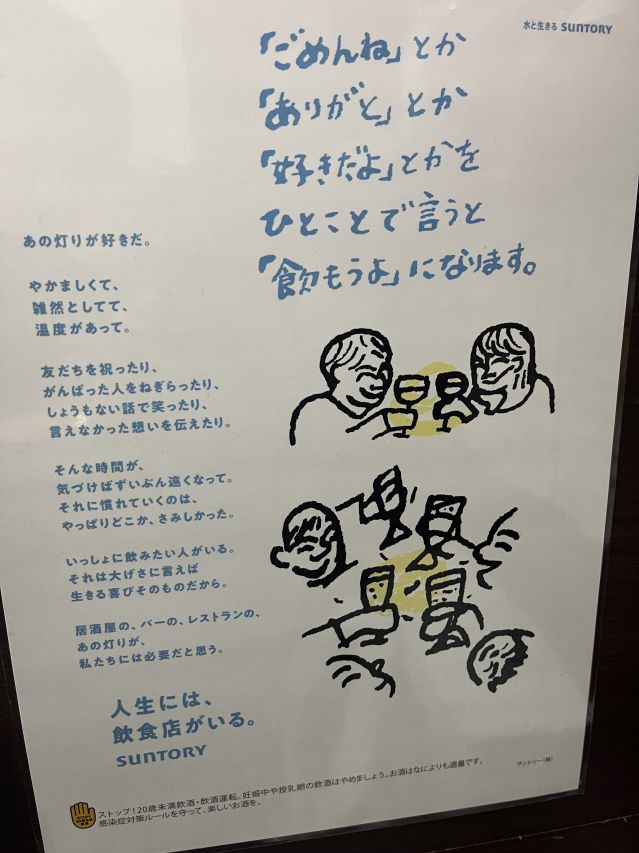 水と生きる SUNTORY
「ごめんね」とか
「ありがと」とか
「好きだよ」とかを
ひとことで言うと
「飲もうよ」になります。
あの灯りが好きだ。
やかましくて、
雑然としてて、
温度があって。
友だちを祝ったり、
がんばった人をねぎらったり、
しょうもない話で笑ったり、
言えなかった想いを伝えたり。
そんな時間が、
気づけばずいぶん遠くなって。
それに慣れていくのは、
やっぱりどこか、さみしかった。
いっしょに飲みたい人がいる。
それは大げさに言えば
生きる喜びそのものだから。
居酒屋の、バーの、レストランの、
あの灯りが、
私たちには必要だと思う。
人生には、
飲食店がいる。
SUNTORY
サントリー(株)
ストップ!20歳未満飲酒・飲酒運転。妊娠中や授乳期の飲酒はやめましょう。お酒はなによりも適量です。
感染症対策ルールを守って、楽しいお酒を。